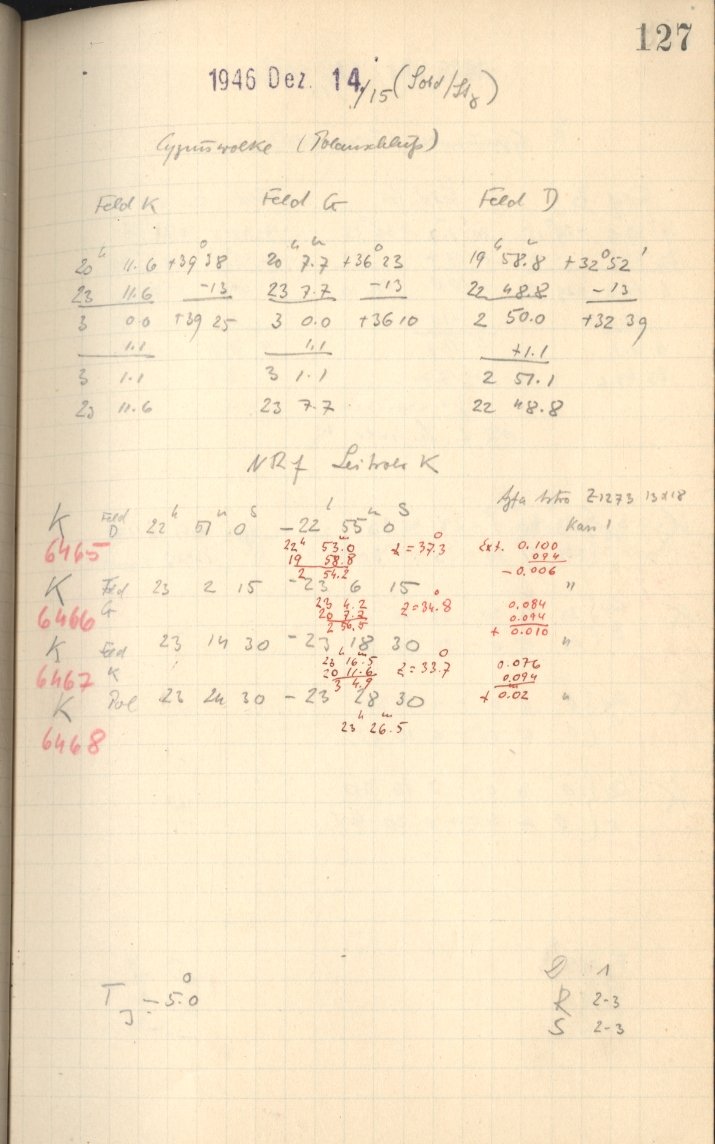 127
1946 Dez. 14./15 (Sord/Stz)
Cygnuswolke (Polanschluß)
Feld K Feld G Feld D
20ʰ 11.6 +39°38 20ʰ 7.7ᵐ +36°23 19ʰ 58.8ᵐ +32°52'
23 11.6 -13 23 7.7 -13 22 48.8 -13
3 0.0 +39 25 3 0.0 +36 10 2 50.0 +32 39
1.1 1.1 +1.1
3 1.1 3 1.1 2 51.1
23 11.6 23 7.7 22 48.8
NRf Leitrohr K
Agfa Astro Z1273 13x18
K Feld D 22ʰ 51ᵐ 0ˢ - 22ʰ 55ᵐ 0ˢ Kass 1
6465 22ʰ 53.0ᵐ z = 37.3° Ext. 0.100
19 58.8 094
2 54.2 -0.006
K Feld G 23 2 15 - 23 6 15 "
6466 23 4.2 z = 34.8° 0.084
20 7.7 0.094
2 56.5 + 0.010
K Feld K 23 14 30 - 23 18 30 "
6467 23ʰ 16.5ᵐ z = 33.7° 0.076
20 11.6 0.094
3 4.9 + 0.02
K Pol 23 24 30 - 23 28 30 "
6468 23ʰ 26.5ᵐ
T J - 5.0°
D 1
R 2-3
S 2-3